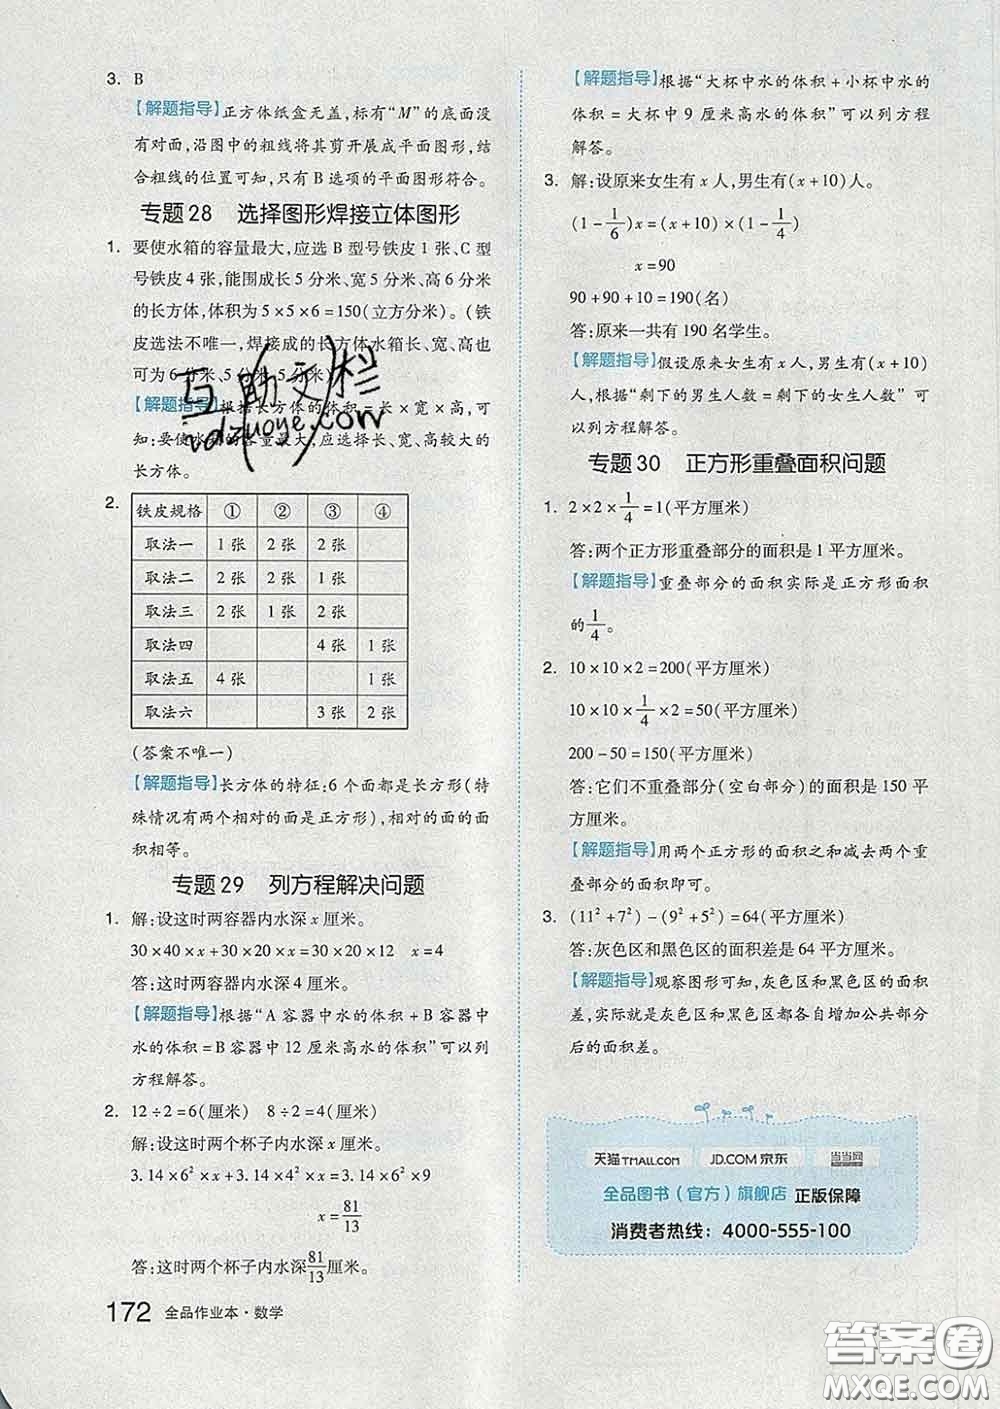 3. B
【解题指导】正方体纸盒无盖,标有“M”的底面没
有对面,沿图中的粗线将其剪开展成平面图形,结
合粗线的位置可知,只有 B 选项的平面图形符合。
专题28 选择图形焊接立体图形
1. 要使水箱的容量最大,应选 B 型号铁皮 1 张、C 型
号铁皮 4 张,能围成长 5 分米、宽 5 分米、高 6 分米
的长方体,体积为 5×5×6=150(立方分米)。(铁
皮选法不唯一,焊接成的长方体水箱长、宽、高也
可为 6 分米、5 分米、5 分米)
【解题指导】根据长方体的体积=长×宽×高,可
知:要使水箱的容量最大,应选择长、宽、高较大的
长方体。
2.
铁皮规格 ① ② ③ ④
取法一 1 张 2 张 2 张
取法二 2 张 2 张 1 张
取法三 2 张 1 张 2 张
取法四 4 张 1 张
取法五 4 张 1 张
取法六 3 张 2 张
(答案不唯一)
【解题指导】长方体的特征:6 个面都是长方形(特
殊情况有两个相对的面是正方形),相对的面的面
积相等。
专题29 列方程解决问题
1. 解:设这时两容器内水深 x 厘米。
30×40×x+30×20×x=30×20×12 x=4
答:这时两容器内水深 4 厘米。
【解题指导】根据“A 容器中水的体积+B 容器中
水的体积=B 容器中 12 厘米高水的体积”可以列
方程解答。
2. 12÷2=6(厘米) 8÷2=4(厘米)
解:设这时两个杯子内水深 x 厘米。
3.14×6²×x+3.14×4²×x=3.14×6²×9
x=81/13
答:这时两个杯子内水深81/13厘米。
172 全品作业本·数学
【解题指导】根据“大杯中水的体积+小杯中水的
体积=大杯中 9 厘米高水的体积”可以列方程
解答。
3. 解:设原来女生有 x 人,男生有(x+10)人。
(1-1/6)x=(x+10)×(1-1/4)
x=90
90+90+10=190(名)
答:原来一共有 190 名学生。
【解题指导】假设原来女生有 x 人,男生有(x+10)
人。根据“剩下的男生人数=剩下的女生人数”可
以列方程解答。
专题30 正方形重叠面积问题
1. 2×2×1/4=1(平方厘米)
答:两个正方形重叠部分的面积是 1 平方厘米。
【解题指导】重叠部分的面积实际是正方形面积
的1/4。
2. 10×10×2=200(平方厘米)
10×10×1/4×2=50(平方厘米)
200-50=150(平方厘米)
答:它们不重叠部分(空白部分)的面积是 150 平
方厘米。
【解题指导】用两个正方形的面积之和减去两个重
叠部分的面积即可。
3. (11²+7²)-(9²+5²)=64(平方厘米)
答:灰色区和黑色区的面积差是 64 平方厘米。
【解题指导】观察图形可知,灰色区和黑色区的面积
差,实际就是灰色区和黑色区都各自增加公共部分
后的面积差。
天猫TMALL.COM JD.COM京东 当当网
全品图书(官方)旗舰店 正版保障
消费者热线:4000-555-100
互助文栏
答案圈
MXQE.COM